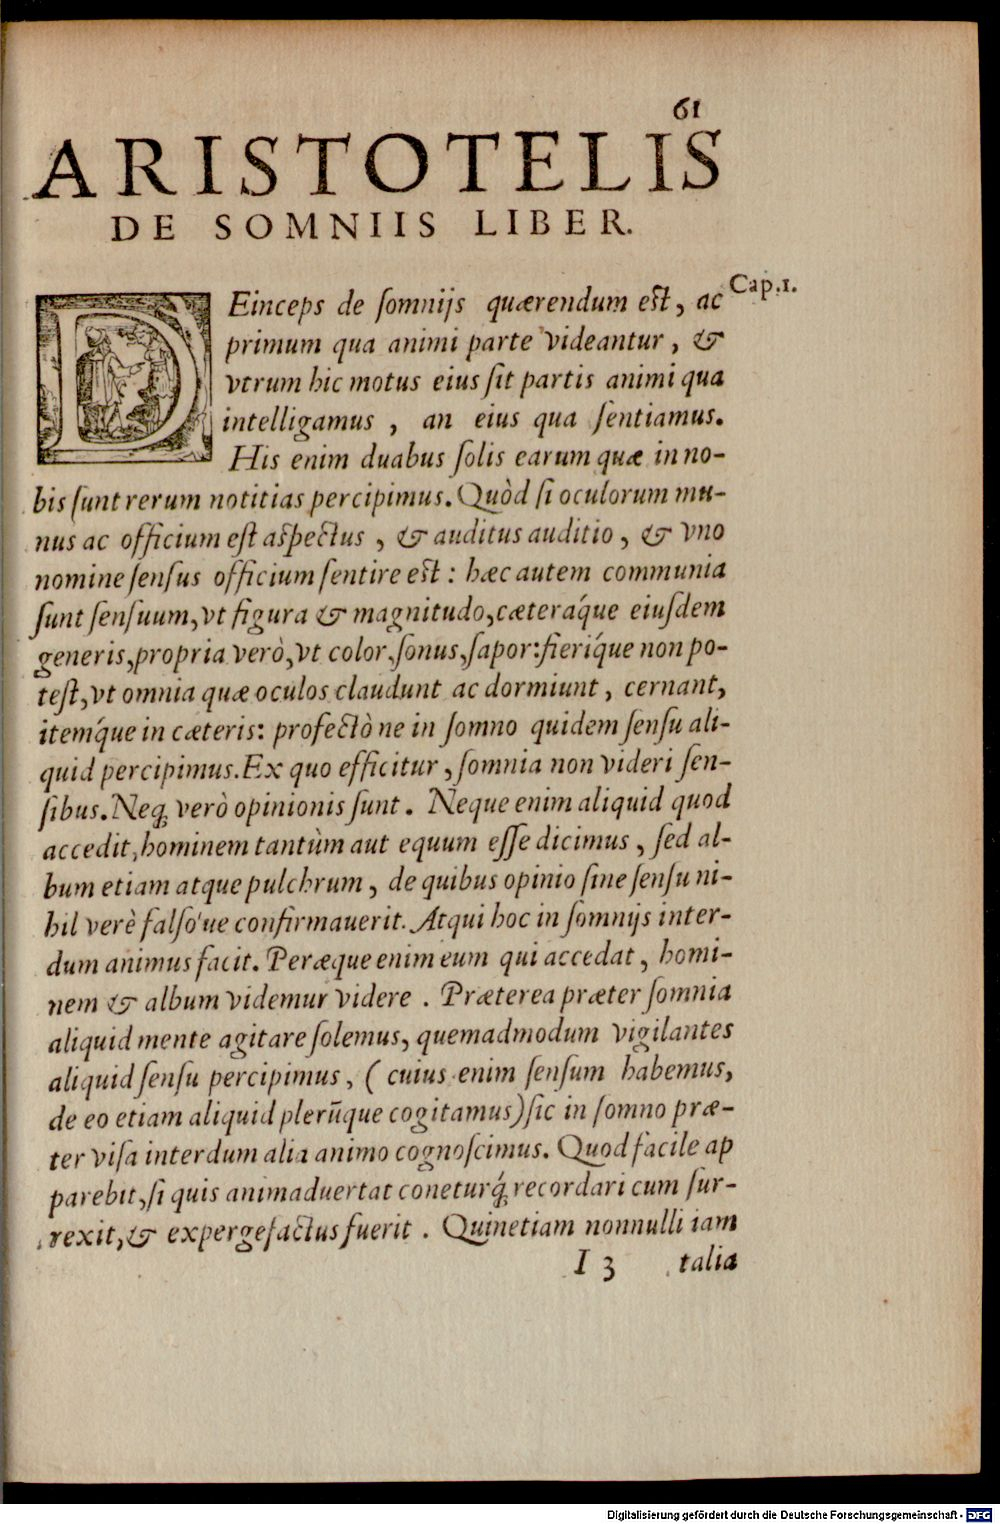 61
ARISTOTELIS
DE SOMNIIS LIBER.
Cap.1.
DEinceps de ſomnijs quærendum eſt, ac
primum qua animi parte videantur, &
vtrum hic motus eius ſit partis animi qua
intelligamus, an eius qua ſentiamus.
His enim duabus ſolis earum quæ in no-
bis ſunt rerum notitias percipimus. Quòd ſi oculorum mu-
nus ac officium eſt aſpectus, & auditus auditio, & vno
nomine ſenſus officium ſentire eſt: hæc autem communia
ſunt ſenſuum, vt figura & magnitudo, cæteráque eiuſdem
generis, propria verò, vt color, ſonus, ſapor: fieríque non po-
teſt, vt omnia quæ oculos claudunt ac dormiunt, cernant,
itémque in cæteris: profectò ne in ſomno quidem ſenſu ali-
quid percipimus. Ex quo efficitur, ſomnia non videri ſen-
ſibus. Neq; verò opinionis ſunt. Neque enim aliquid quod
accedit, hominem tantùm aut equum eſſe dicimus, ſed al-
bum etiam atque pulchrum, de quibus opinio ſine ſenſu ni-
hil verè falſo'ue confirmauerit. Atqui hoc in ſomnijs inter-
dum animus facit. Peræque enim eum qui accedat, homi-
nem & album videmur videre. Præterea præter ſomnia
aliquid mente agitare ſolemus, quemadmodum vigilantes
aliquid ſenſu percipimus, (cuius enim ſenſum habemus,
de eo etiam aliquid plerũque cogitamus) ſic in ſomno præ-
ter viſa interdum alia animo cognoſcimus. Quod facile ap
parebit, ſi quis animaduertat coneturq́; recordari cum ſur-
rexit, & expergefactus fuerit. Quinetiam nonnulli iam
I 3 talia
Digitalisierung gefördert durch die Deutsche Forschungsgemeinschaft - DFG